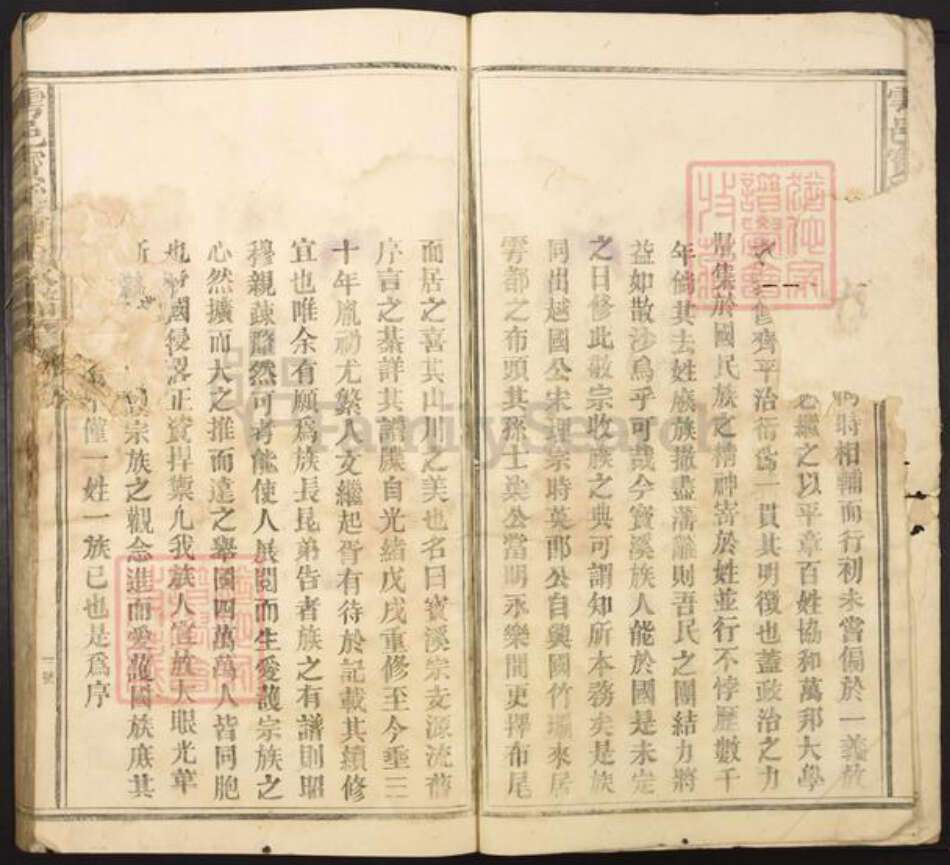 時相輔而行初未嘗偏於一義放
繼之以平章百姓協和萬邦大學
修齊平治衍為一貫其明徵也蓋政治之力
集於國民族之精神寄於姓並行不悖歷數千
年倘其去姓廢族撤盡藩離則吾民之團結力將
益如散沙烏乎可哉今寶溪族人能於國是未定
之日修此敬宗收族之典可謂知所本務矣是族
同出越國公宋理宗時英郎公自興國竹壩來居
雩都之布頭其孫士染公當明永樂間更擇布尾
而居之喜其山川之美也名曰寶溪宗支源流舊
序言之綦詳其譜牒自光緒戊戌重修至今垂三
十年胤礽尤繁人文繼起胥有待於記載其續修
宜也唯余有願為族長昆弟告者族之有譜則昭
穆親疎釐然可考能使人展閱而生愛護宗族之
心然擴而大之推而遠之舉國四萬萬人皆同胞
也外國侵畧正資捍禦凡我族人宜放大眼光葷
宗族之觀念進而愛護國族庶其
僅一姓一族已也是為序
二號
FamilySearch